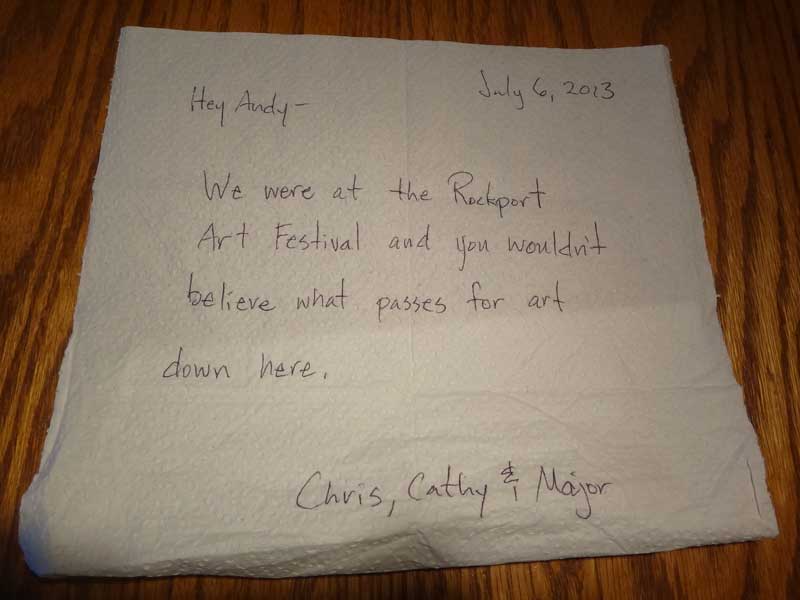 July 6, 2013
Hey Andy-
We were at the Rockport
Art Festival and you wouldn't
believe what passes for art
down here.
Chris, Cathy & Major